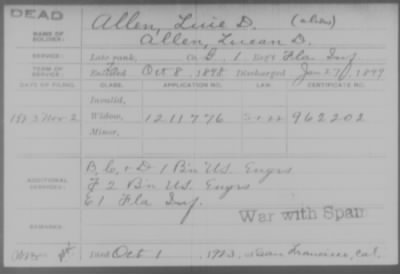 DEAD
Allen, Lucie D. (alias)
NAME OF SOLDIER: Allen, Lucan D.
SERVICE: Late rank, Co. G, 1 Reg't Fla Inf
TERM OF SERVICE: Enlisted Oct 8, 1898 Discharged Jan 27, 1899
DATE OF FILING. CLASS. APPLICATION NO. LAW. CERTIFICATE NO.
Invalid,
1923 Nov 2 Widow, 1211776 962202
Minor,
ADDITIONAL SERVICES:
B, C, + D 1 Bn U.S. Engrs
F 2 Bn U.S. Engrs
E 1 Fla Inf.
War with Spain
REMARKS
Died Oct 1, 1923, at San Francisco, Cal.